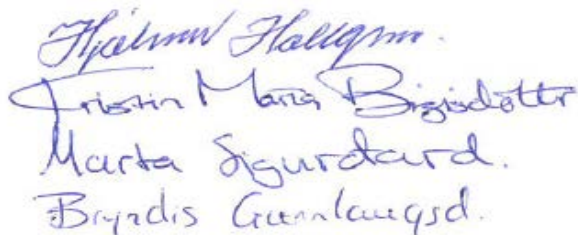 Hjálmar Hallgrm.
Kristín María Birgisdóttir
Marta Sigurdard.
Bryndis Gunnlaugsd.